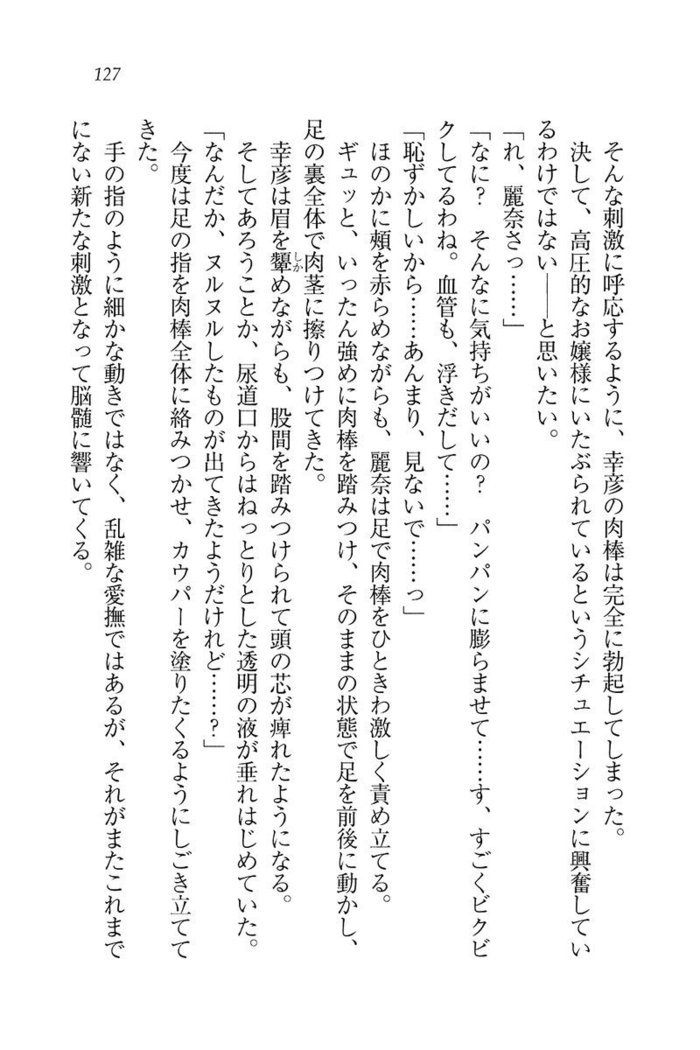 127
そんな刺激に呼応するように、幸彦の肉棒は完全に勃起してしまった。
決して、高圧的なお嬢様にいたぶられているというシチュエーションに興奮してい
るわけではない――と思いたい。
「れ、麗奈さっ……」
「なに？　そんなに気持ちがいいの？　パンパンに膨らませて……す、すごくビクビ
クしてるわね。血管も、浮きだして……」
「恥ずかしいから……あんまり、見ないで……っ」
ほのかに頰を赤らめながらも、麗奈は足で肉棒をひときわ激しく責め立てる。
ギュッと、いったん強めに肉棒を踏みつけ、そのままの状態で足を前後に動かし、
足の裏全体で肉茎に擦りつけてきた。
幸彦は眉を顰しかめながらも、股間を踏みつけられて頭の芯が痺れたようになる。
そしてあろうことか、尿道口からはねっとりとした透明の液が垂れはじめていた。
「なんだか、ヌルヌルしたものが出てきたようだけれど……？」
今度は足の指を肉棒全体に絡みつかせ、カウパーを塗りたくるようにしごき立てて
きた。
手の指のように細かな動きではなく、乱雑な愛撫ではあるが、それがまたこれまで
にない新たな刺激となって脳髄に響いてくる。